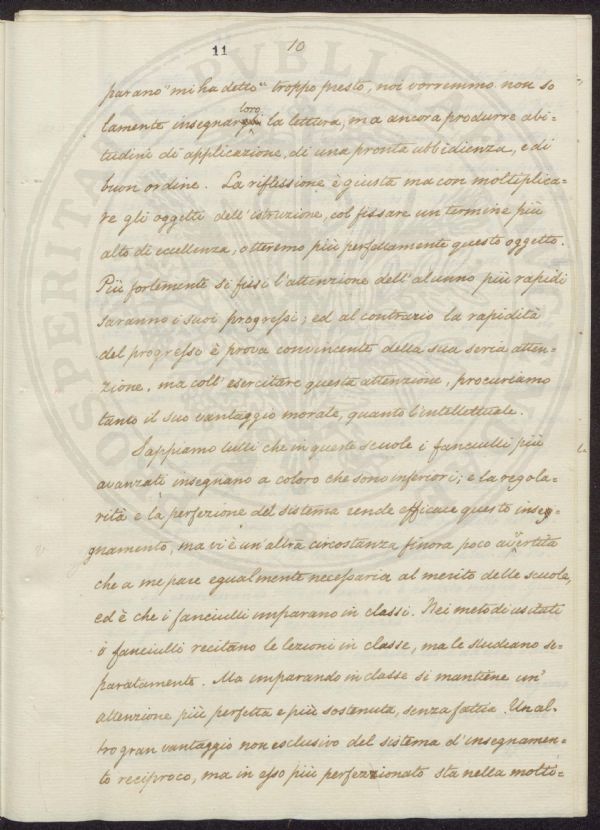 11 10
parano "mi ha detto" troppo presto, noi vorremmo non so
lamente insegnare loro la lettura, ma ancora produrre abi=
tudini di applicazione, di una pronta ubbidienza, e di
buon ordine. La riflessione è giusta ma con moltiplica=
re gli oggetti dell'istruzione, col fissare un termine più
alto di eccellenza, otteremo più perfettamente questo oggetto.
Più fortemente si fissi l'attenzione dell'alunno più rapidi
saranno i suoi progressi; ed al contrario la rapidità
del progresso è prova convincente della sua seria atten=
zione, ma coll'esercitare questa attenzione, procuriamo
tanto il suo vantaggio morale, quanto l'intellettuale.
Sappiamo tutti che in queste scuole i fanciulli più
avanzati insegnano a coloro che sono inferiori; e la regola=
rità e la perfezione del sistema rende efficace questo inse=
gnamento, ma vi è un'altra circostanza finora poco avvertita
che a me pare egualmente necessaria al merito delle scuole,
ed è che i fanciulli imparano in classi. Nei metodi usitati
i fanciulli recitano le lezioni in classe, ma le studeano se=
paratamente. Ma imparando in classe si mantiene un'
attenzione più perfetta e più sostenuta, senza fatica. Un al=
tro gran vantaggio non esclusivo del sistema d'insegnamen=
to reciproco, ma in esso più perfezionato sta nella molti=